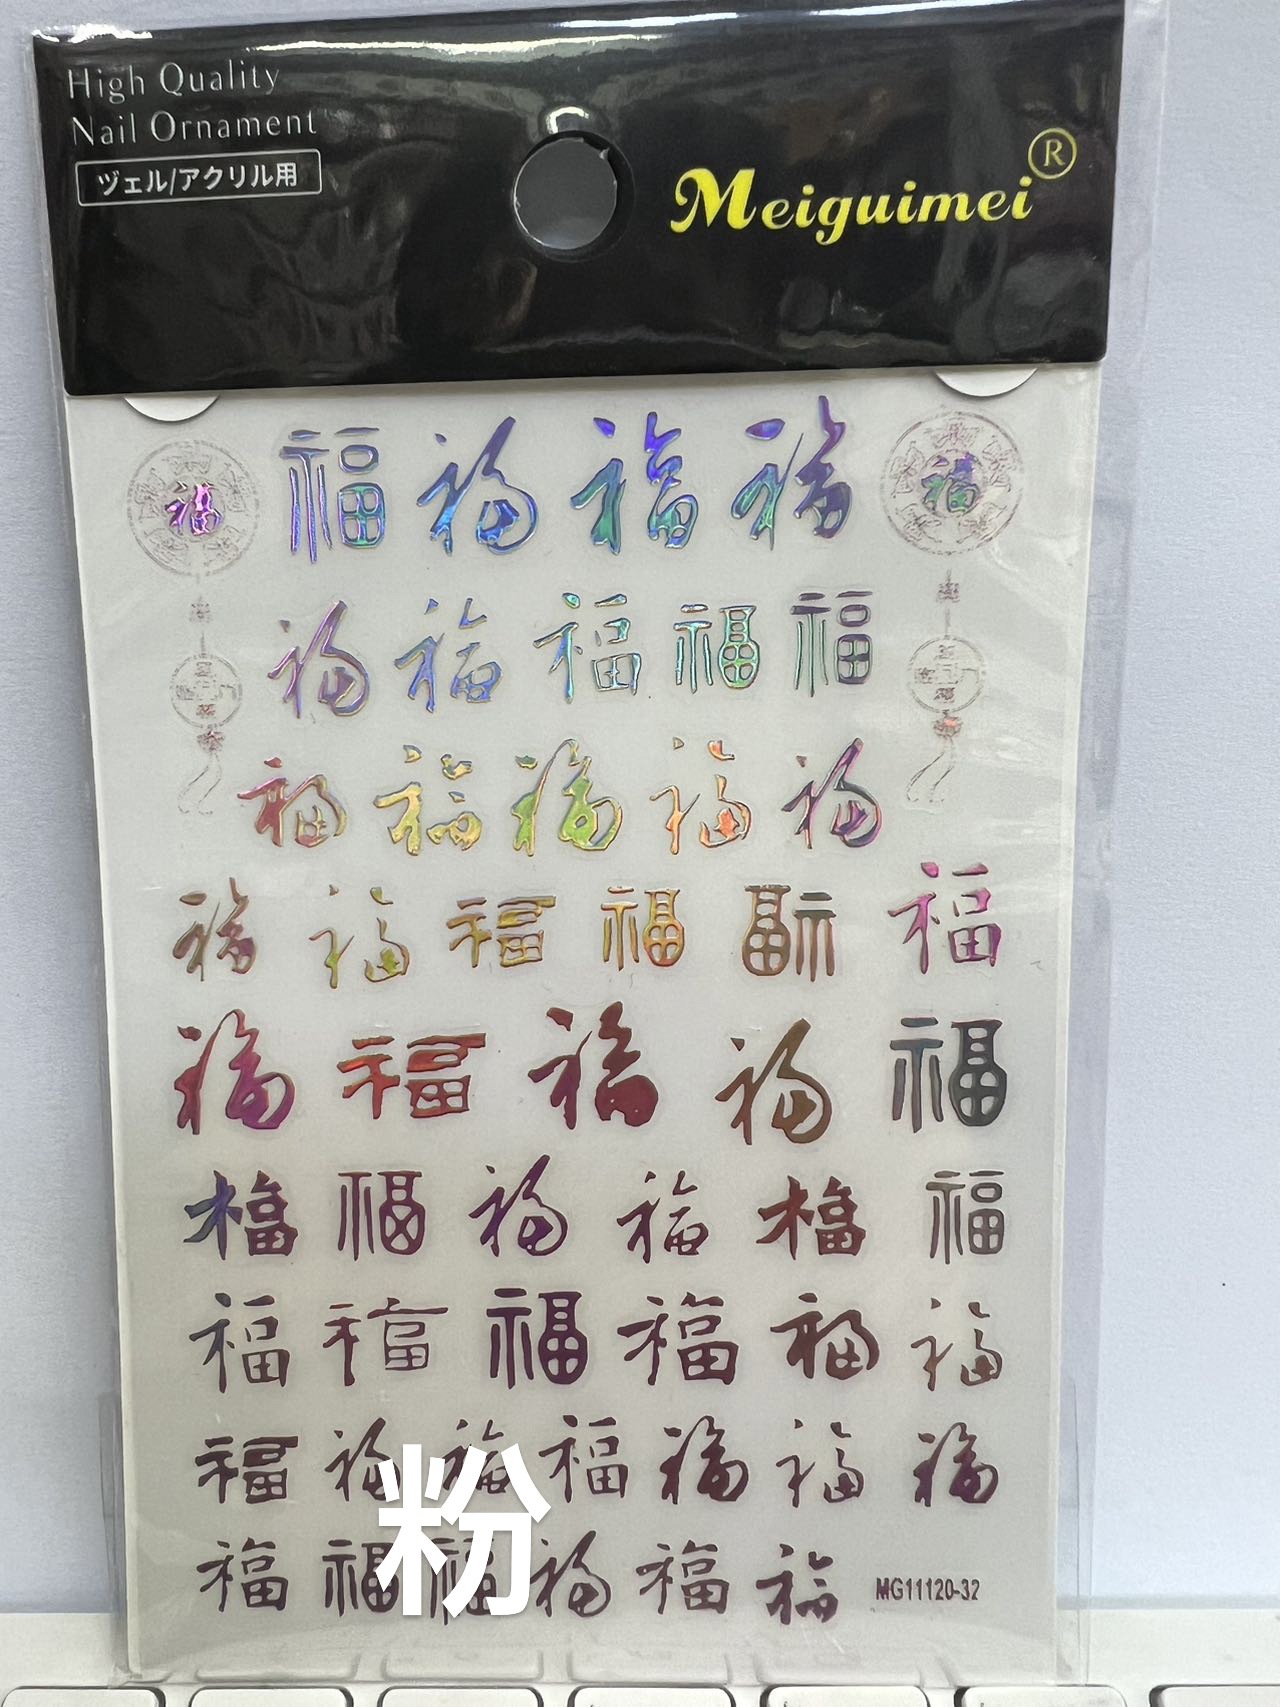 High Quality
Nail Ornament
ヅェル/アクリル用
Meiguimei®
福 福 福 福 福 福
福 福 福 福 福
福 福 福 福 福
福 福 福 福 福 福
福 福 福 福 福
福 福 福 福 福 福
福 福 福 福 福 福
福 福 福 福 福 福 福
福 福 福 福 福 福
粉
MG11120-32